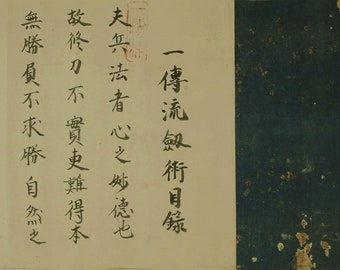 一傳流劔術目錄
夫兵法者心之妙德也
故修刀不實更難得本
無勝負不求勝自然之